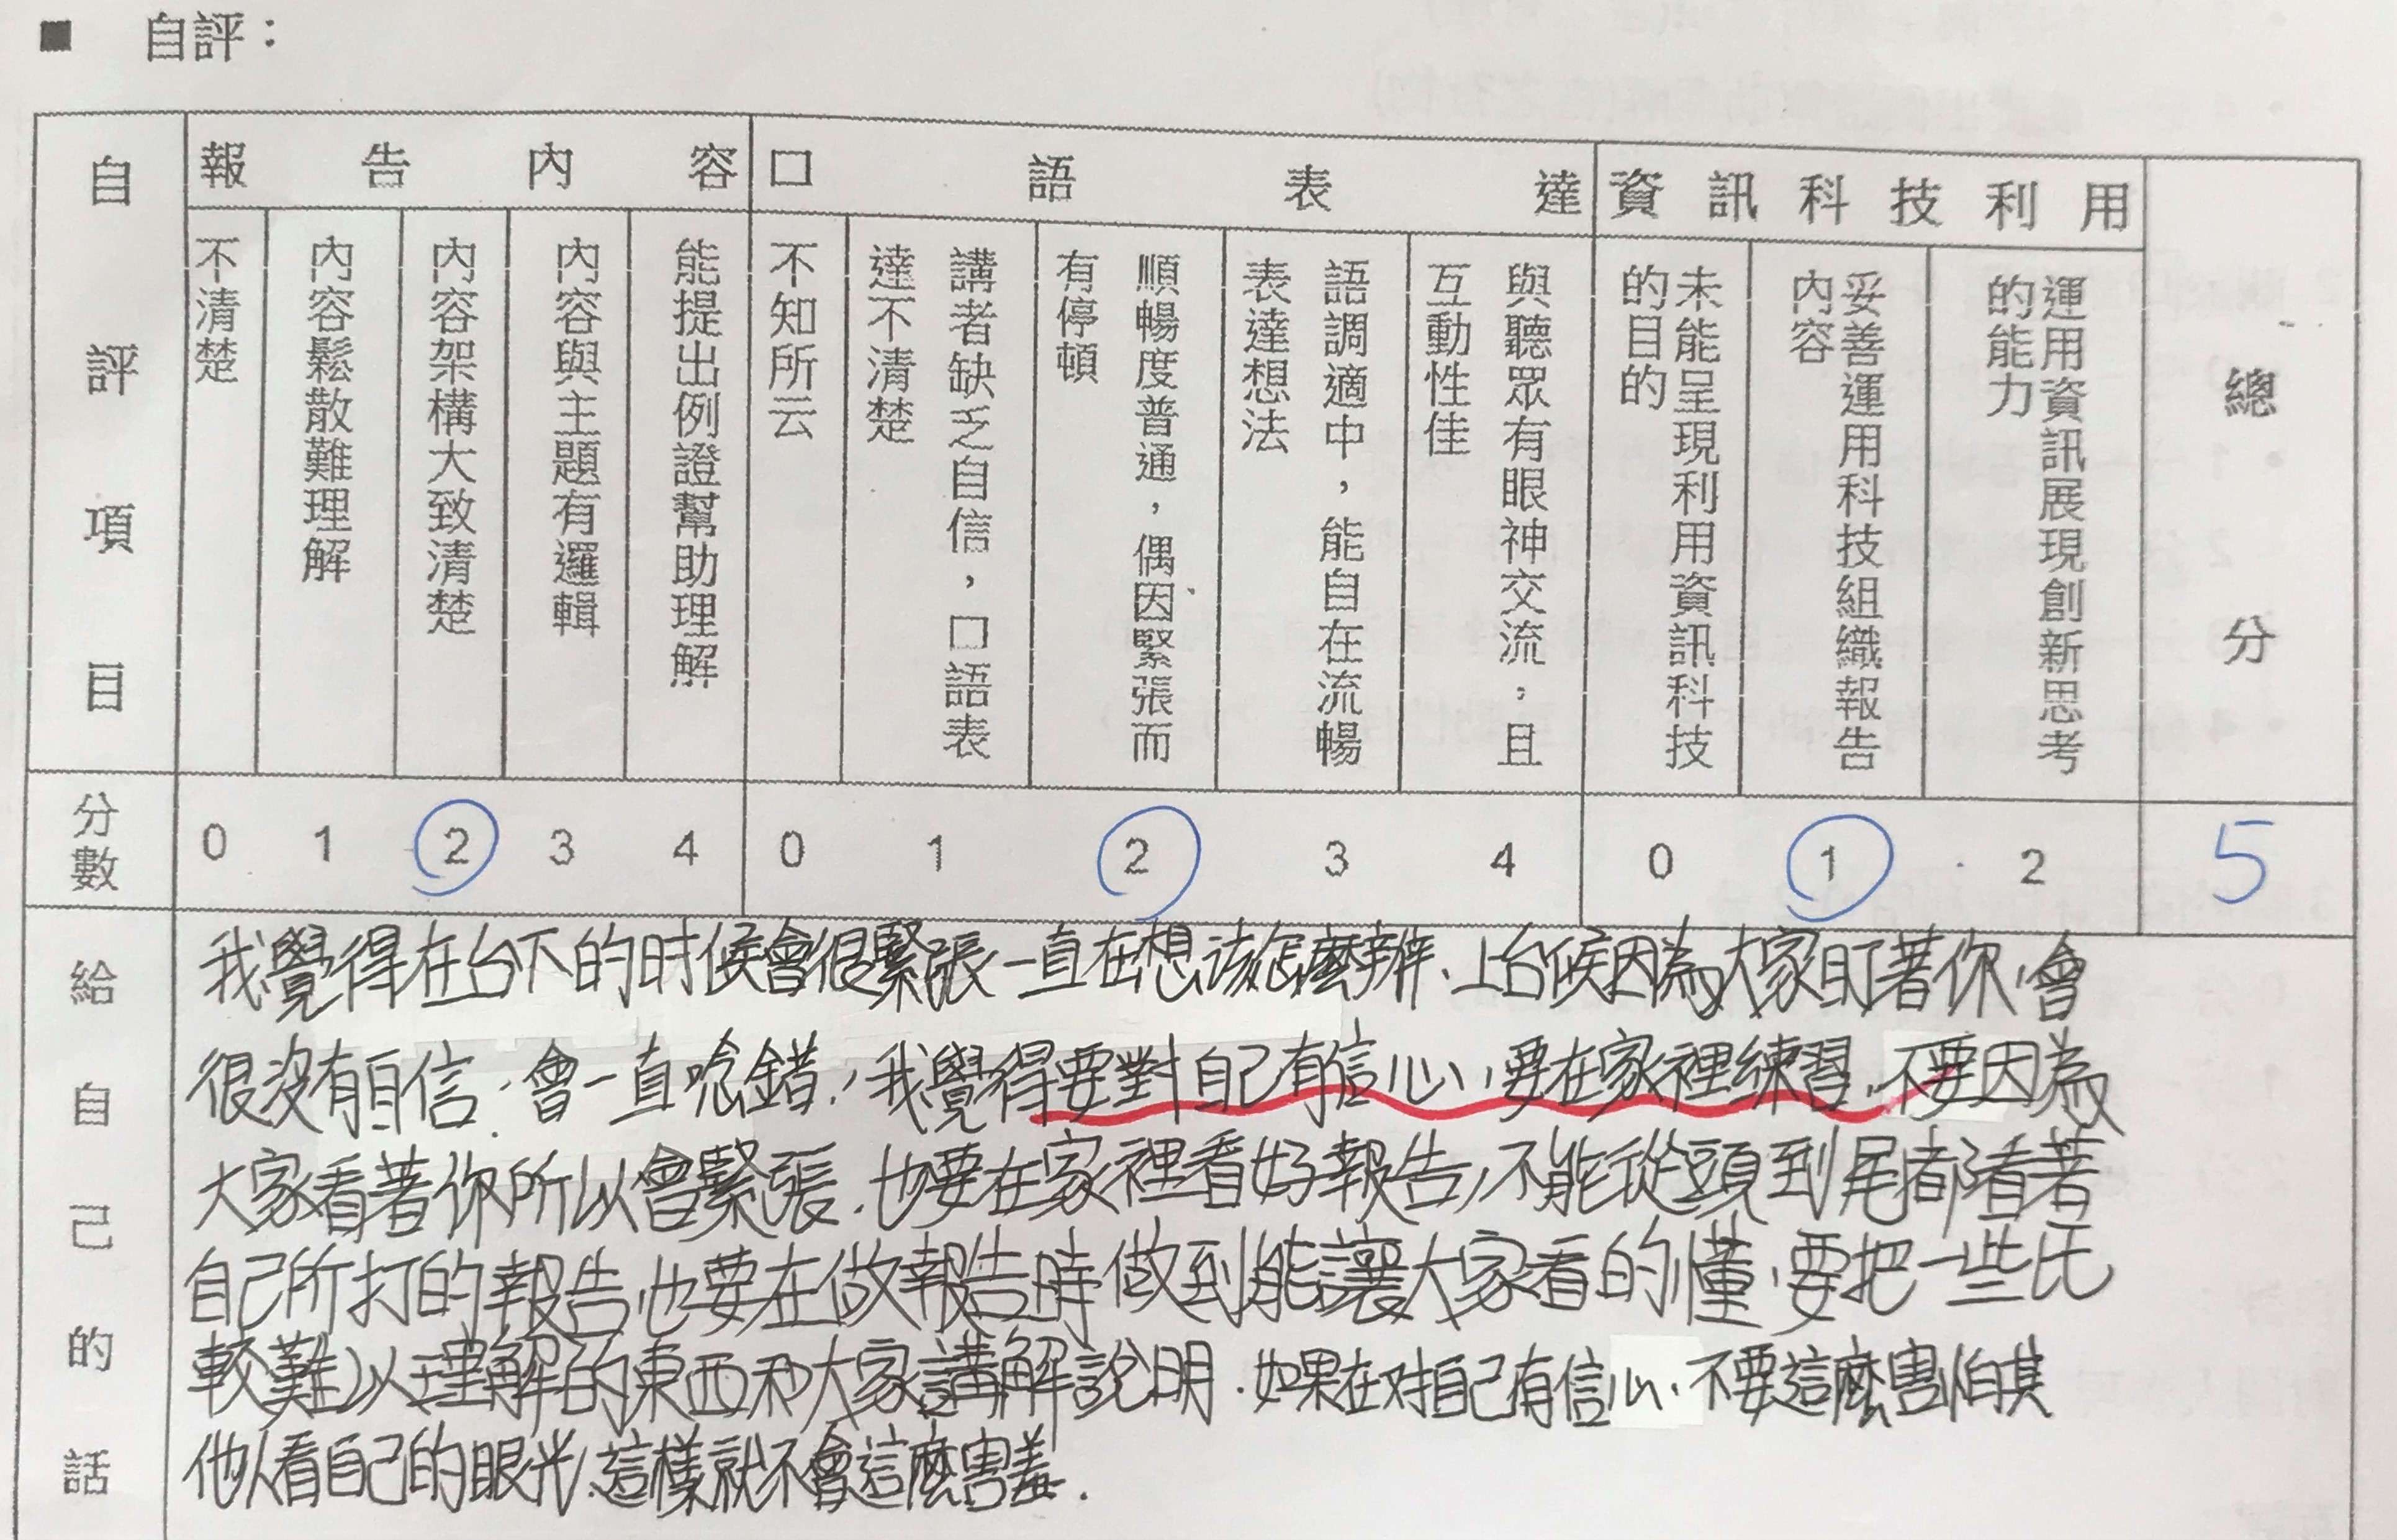 ■ 自評：
自評項目
報告內容
口語表達
資訊科技利用
總分
不清楚
內容鬆散難理解
內容架構大致清楚
內容與主題有邏輯
能提出例證幫助理解
不知所云
講者缺乏自信，口語表
達不清楚
順暢度普通，偶因緊張而
有停頓
語調適中，能自在流暢
表達想法
與聽眾有眼神交流，且
互動性佳
未能呈現利用資訊科技
的目的
妥善運用科技組織報告
內容
運用資訊展現創新思考
的能力
分數
0 1 2 3 4 0 1 2 3 4 0 1 2 5
給自己的話
我覺得在台下的时候會很緊張一直在想该怎麼辦、上台候因為大家盯著你，會
很沒有自信，會一直唸錯，我覺得要對自己有信心，要在家裡練習，不要因為
大家看著你所以會緊張．也要在家裡看好報告，不能從頭到尾都看著
自己所打的報告，也要在做報告時做到能讓大家看的懂，要把一些比
較難以理解的東西和大家講解說明．如果在对自己有信心、不要這麼害怕其
他人看自己的眼光，這樣就不會這麼害羞．